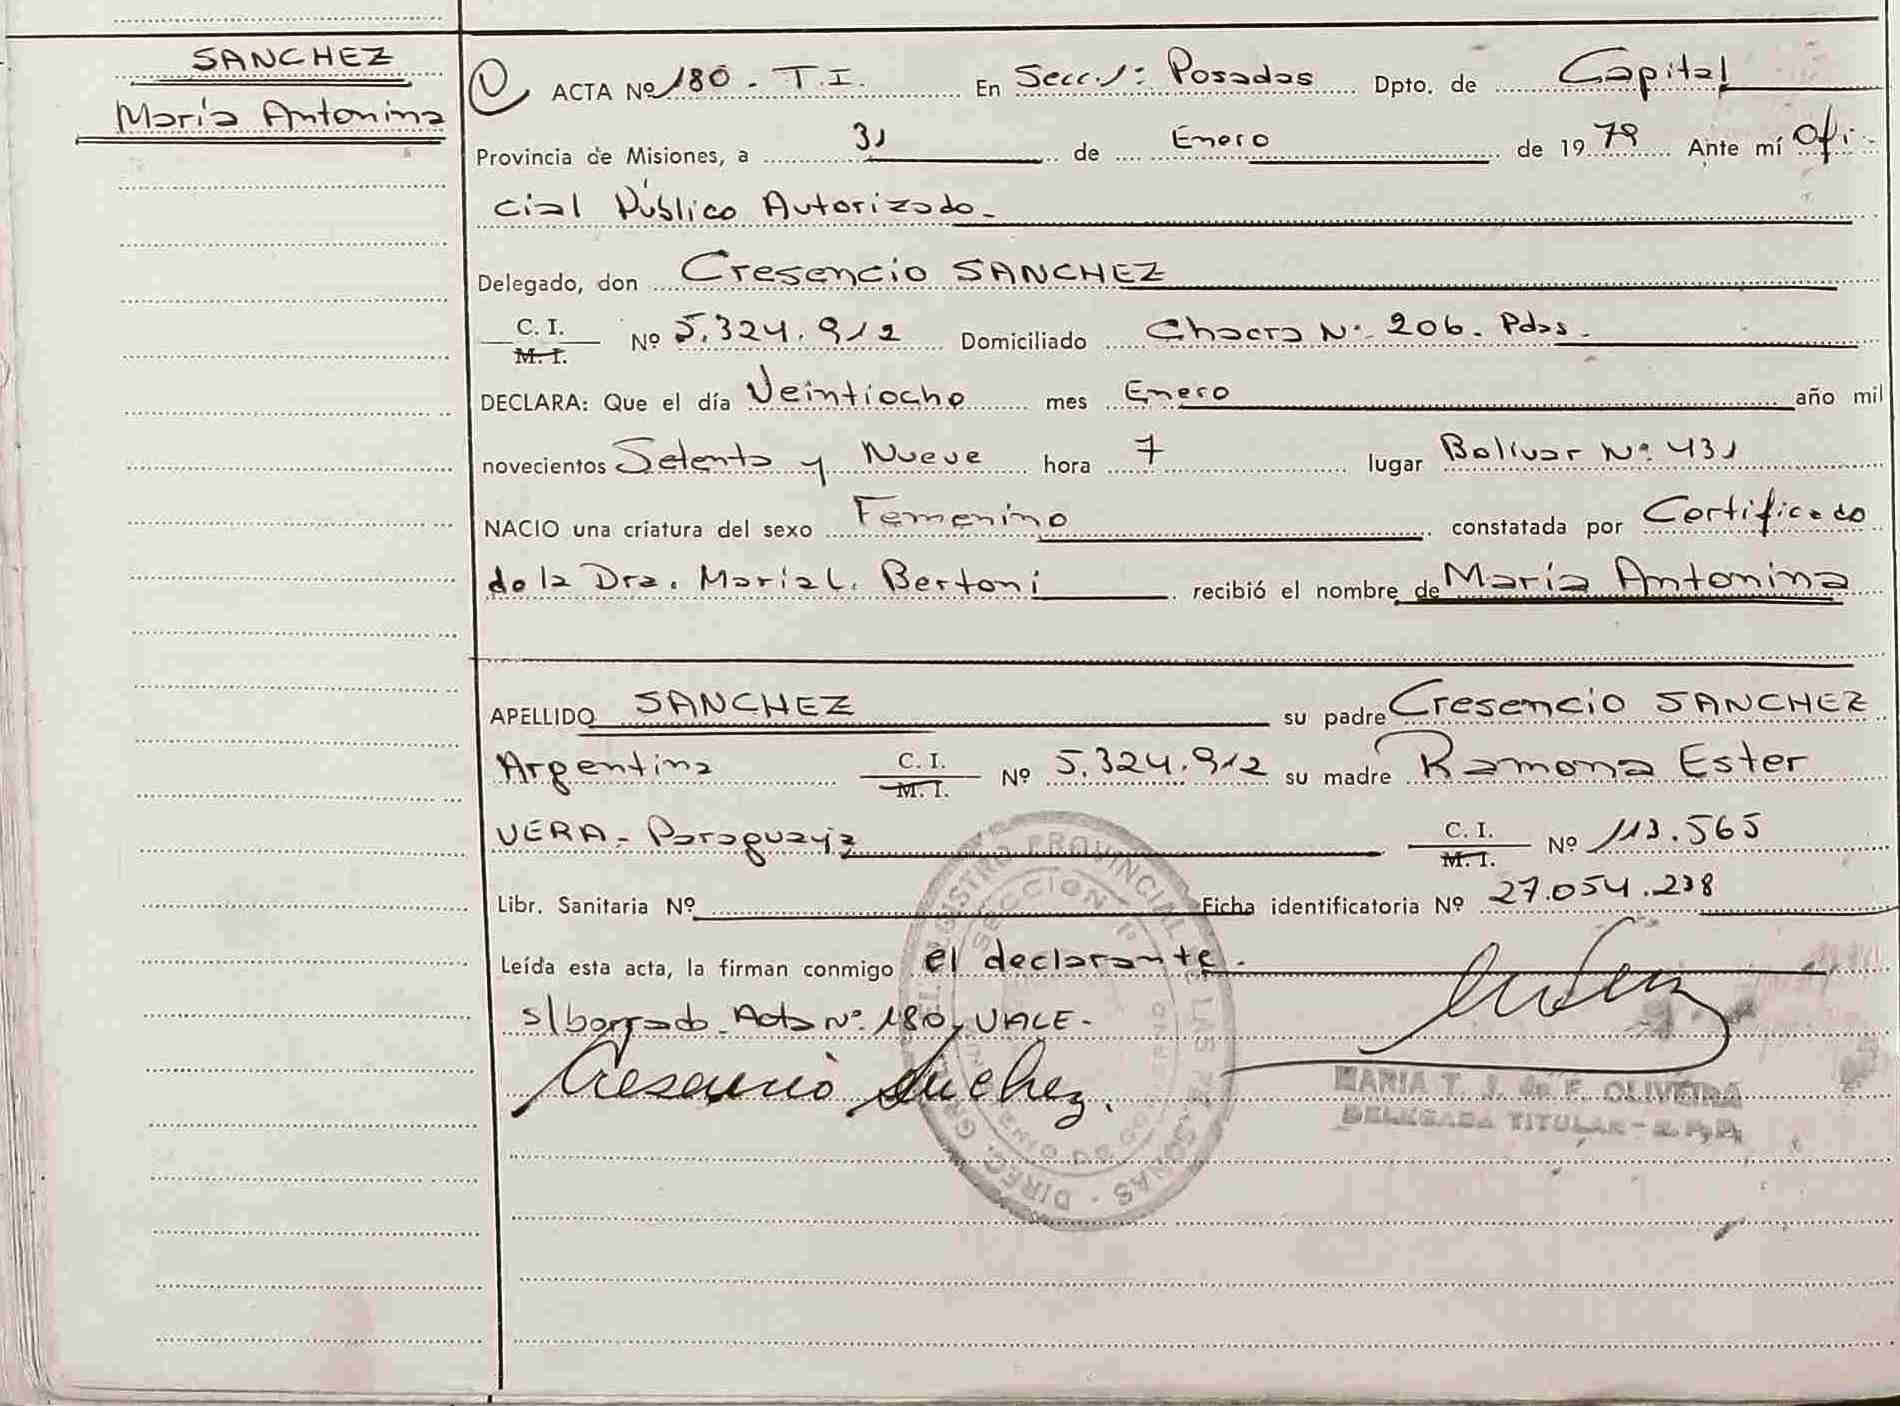 SANCHEZ
María Antonina
ACTA Nº 180 - T.I. En Secc. 1º: Posadas Dpto. de Capital
Provincia de Misiones, a 31 de Enero de 1979 Ante mí Ofi-
cial Público Autorizado.-
Delegado, don Cresencio SANCHEZ
C. I. M. I. Nº 5.324.912 Domiciliado Chacra Nº 206. Pdas.
DECLARA: Que el día Veintiocho mes Enero año mil
novecientos Setenta y Nueve hora 7 lugar Bolívar Nº 431
NACIO una criatura del sexo Femenino constatada por Certificado
de la Dra. María L. Bertoni recibió el nombre de María Antonina
APELLIDO SANCHEZ su padre Cresencio SANCHEZ
Argentina C. I. M. I. Nº 5.324.912 su madre Ramona Ester
VERA - Paraguaya C. I. M. I. Nº 113.565
Libr. Sanitaria Nº Ficha identificatoria Nº 27.054.238
Leída esta acta, la firman conmigo el declarante.
s/borrado. Acta Nº 180, VALE.-
Cresencio Sanchez.
MARIA T. J. de F. OLIVEIRA
DELEGADA TITULAR - R. P. P.
DIREC. GRAL. REGISTRO PROVINCIAL DE LAS PERSONAS
SECCION 1º